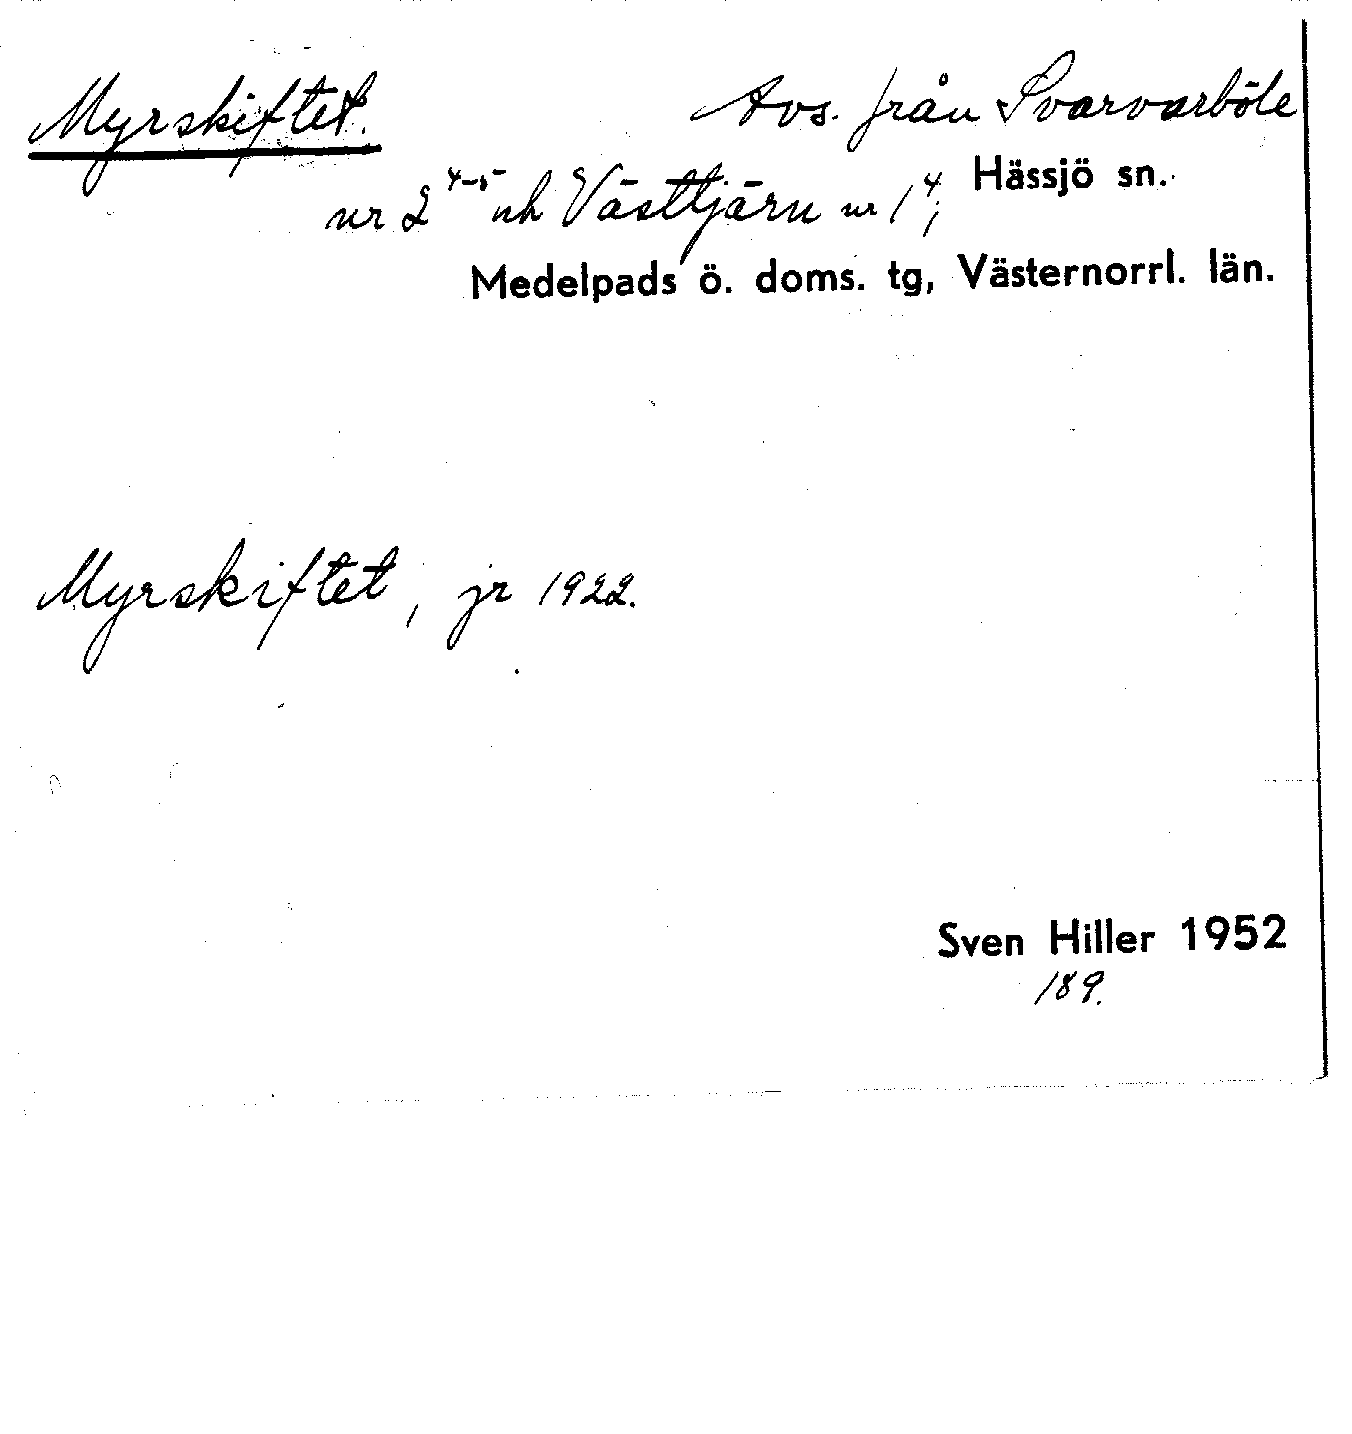 Myrskiftet. Avs. från Svarvarböle
nr 2 4-5 och Västtjärn nr 1 4; Hässjö sn.
Medelpads ö. doms. tg, Västernorrl. län.
Myrskiftet, jr 1922.
Sven Hiller 1952
189.